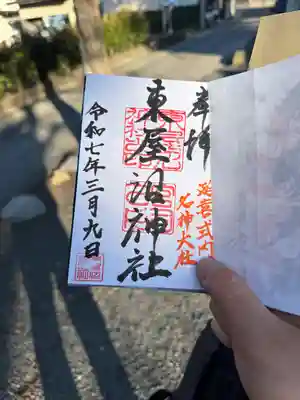 奉拝
延喜式内
名神大社
東屋沼神社
令和七年三月九日